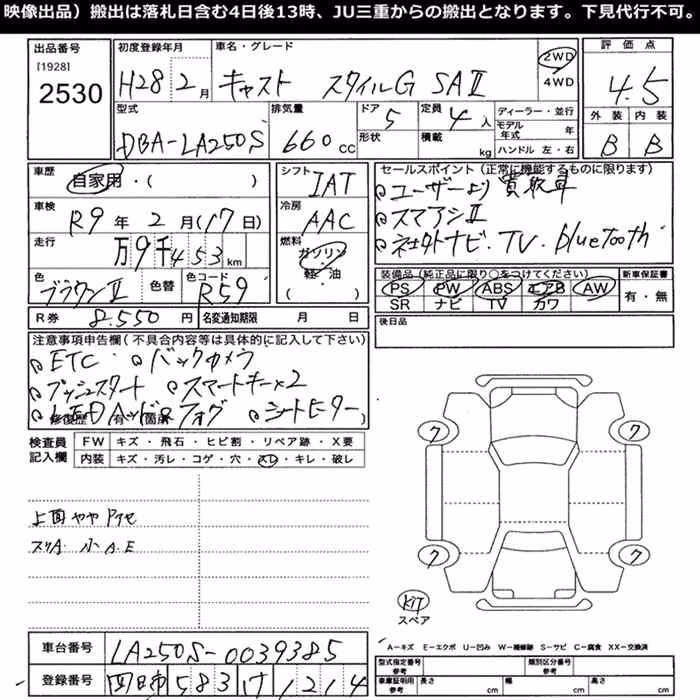 映像出品）搬出は落札日含む4日後13時、JU三重からの搬出となります。下見代行不可。
出品番号 初度登録年月 車名・グレード 評価点
[1928]
2530 H28 2月 キャスト スタイルG SAⅡ 2WD 4WD 4.5
型式 排気量 ドア 定員 ディーラー・並行 外装 内装
DBA-LA250S 660cc 5 4人 モデル年式 年 B B
形状 積載 kg ハンドル 左・右
車歴 自家用・( ) シフト IAT セールスポイント（正常に機能するものに限ります）
ユーザーより買取車
車検 R9年2月(17日) 冷房 AAC スマアシⅡ
走行 万9千453km 燃料 ガソリン 軽・油 ( ) 社外ナビ・TV・bluetooth
色 ブラウンⅡ 色替 色コード R59
装備品（純正品に限り○をつけてください） 新車保証書
PS PW ABS エアB AW 有・無
SR ナビ TV カワ
R券 8,550円 名変通知期限 月 日 後日品
注意事項申告欄（不具合内容等は具体的に記入して下さい）
ETC バックカメラ
プッシュスタート スマートキー×2
LEDヘッド&フォグ シートヒーター
修復歴 有 (箇所 )
検査員記入欄 FW キズ・飛石・ヒビ割・リペア跡・X要
内装 キズ・汚レ・コゲ・穴・スレ・キレ・破レ
上面やや
スリA. 小A.E
ワ ワ
ワ ワ
KIT
スペア
車台番号 LA250S-0039385
登録番号 四日市 583 け 1214
A－キズ E－エクボ U－凹み W－補修跡 S－サビ C－腐食 XX－交換済
型式指定番号 参考 類別区分番号 参考
車庫証明用 参考 長さ cm 幅 cm 高さ cm